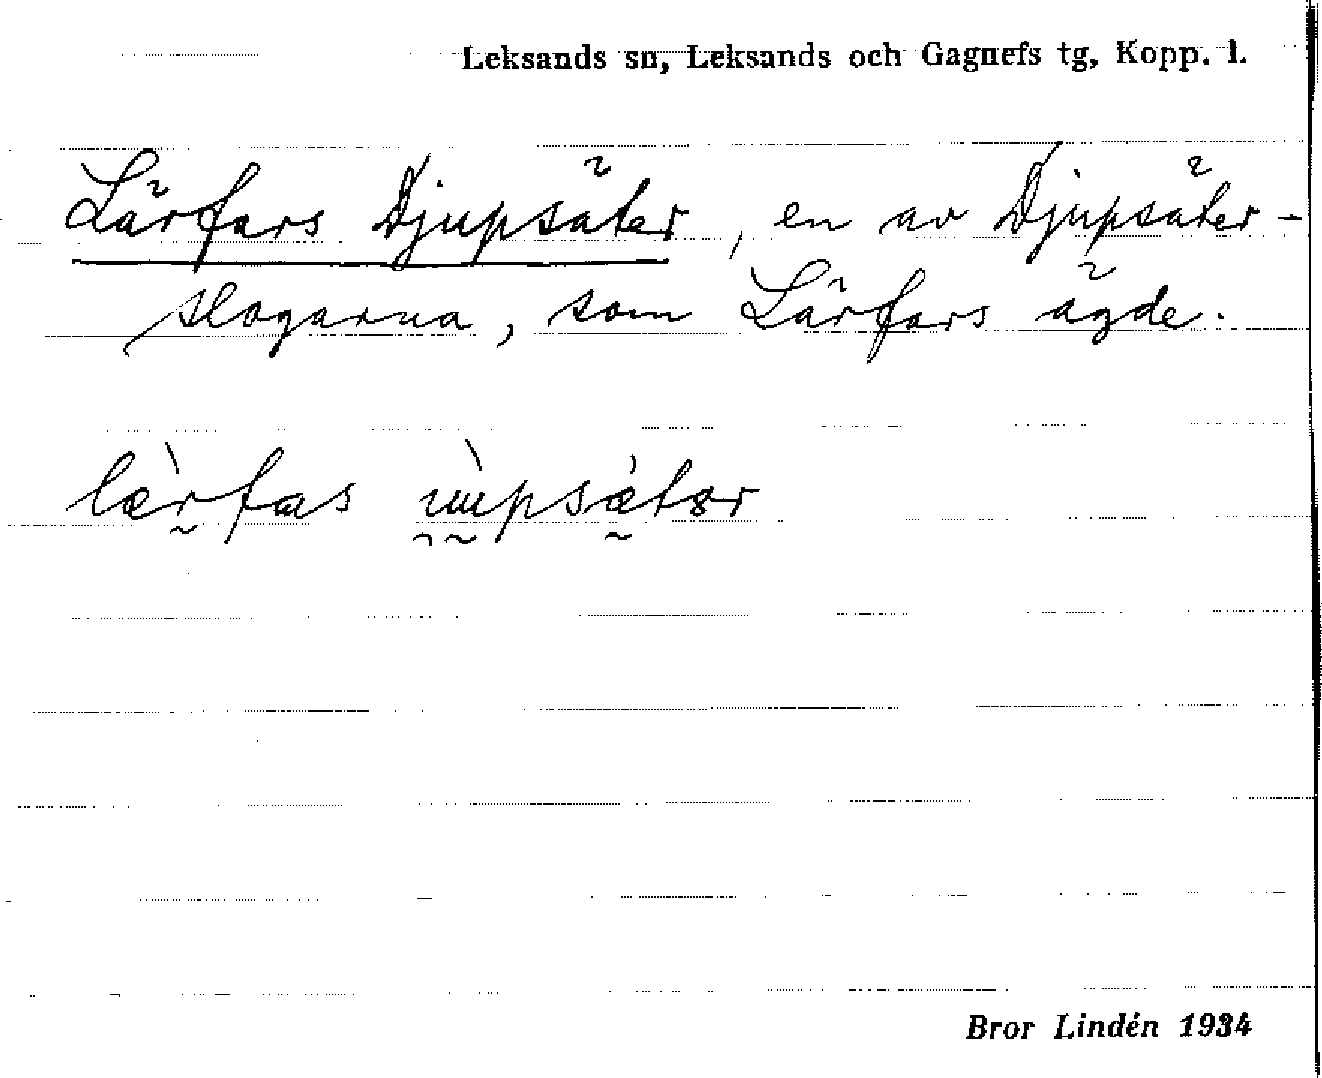 Leksands sn, Leksands och Gagnefs tg, Kopp. l.
Lärfars Djupsäter, en av Djupsäter-
slogarna, som Lärfars ägde.
Bror Lindén 1934